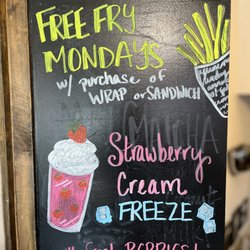 FREE FRY
MONDAYS
w/ purchase of
WRAP or SANDWICH
Strawberry
Cream
FREEZE